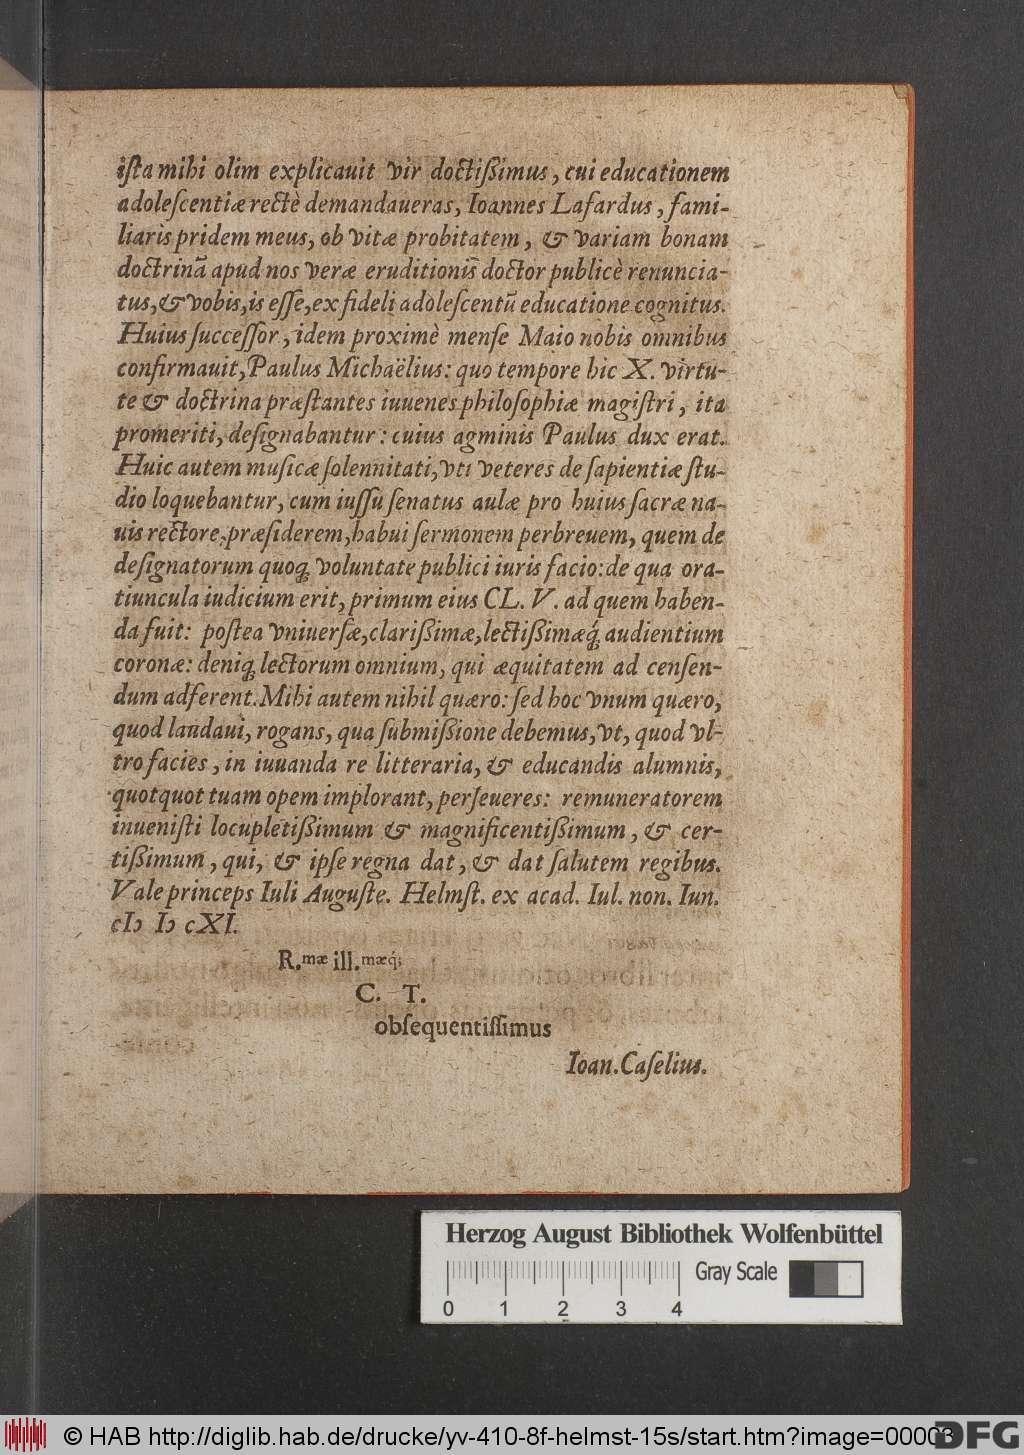 iſta mihi olim explicauit vir doctiſsimus, cui educationem
adoleſcentiæ rectè demandaueras, Ioannes Lafardus, fami-
liaris pridem meus, ob vitæ probitatem, & variam bonam
doctrinã apud nos veræ eruditionis doctor publicè renuncia-
tus, & vobis, is eſſe, ex fideli adoleſcentũ educatione cognitus.
Huius ſucceſſor, idem proximè menſe Maio nobis omnibus
confirmauit, Paulus Michaëlius: quo tempore hic X. virtu-
te & doctrina præſtantes iuuenes philoſophiæ magiſtri, ita
promeriti, deſignabantur: cuius agminis Paulus dux erat.
Huic autem muſicæ ſolennitati, vti veteres de ſapientiæ ſtu-
dio loquebantur, cum iuſſu ſenatus aulæ pro huius ſacræ na-
uis rectore, præſiderem, habui ſermonem perbreuem, quem de
deſignatorum quoq; voluntate publici iuris facio: de qua ora-
tiuncula iudicium erit, primum eius CL. V. ad quem haben-
da fuit: poſtea vniuerſæ, clariſsimæ, lectiſsimæq́; audientium
coronæ: deniq; lectorum omnium, qui æquitatem ad cenſen-
dum adferent. Mihi autem nihil quæro: ſed hoc vnum quæro,
quod landaui, rogans, qua ſubmiſsione debemus, vt, quod vl-
tro facies, in iuuanda re litteraria, & educandis alumnis,
quotquot tuam opem implorant, perſeueres: remuneratorem
inueniſti locupletiſsimum & magnificentiſsimum, & cer-
tiſsimum, qui, & ipſe regna dat, & dat ſalutem regibus.
Vale princeps Iuli Auguſte. Helmſt. ex acad. Iul. non. Iun.
cIↄ Iↄ cXI.
R.mæ ill.mæq́;
C. T.
obſequentiſſimus
Ioan. Caſelius.
Herzog August Bibliothek Wolfenbüttel
Gray Scale
0 1 2 3 4
© HAB http://diglib.hab.de/drucke/yv-410-8f-helmst-15s/start.htm?image=00003
DFG